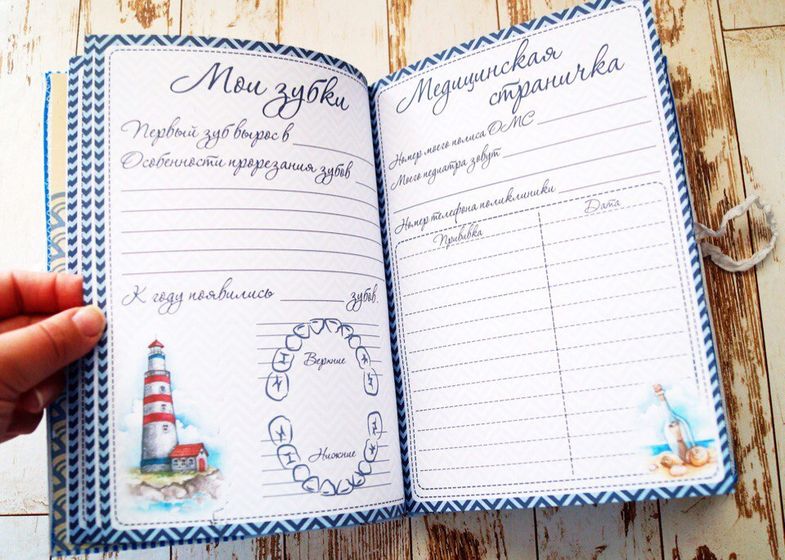 Мои зубки
Первый зуб вырос в
Особенности прорезания зубов
К году появились зубов.
Верхние
Нижние
Медицинская
страничка
Номер моего полиса ОМС
Моего педиатра зовут
Номер телефона поликлиники
Прививка Дата